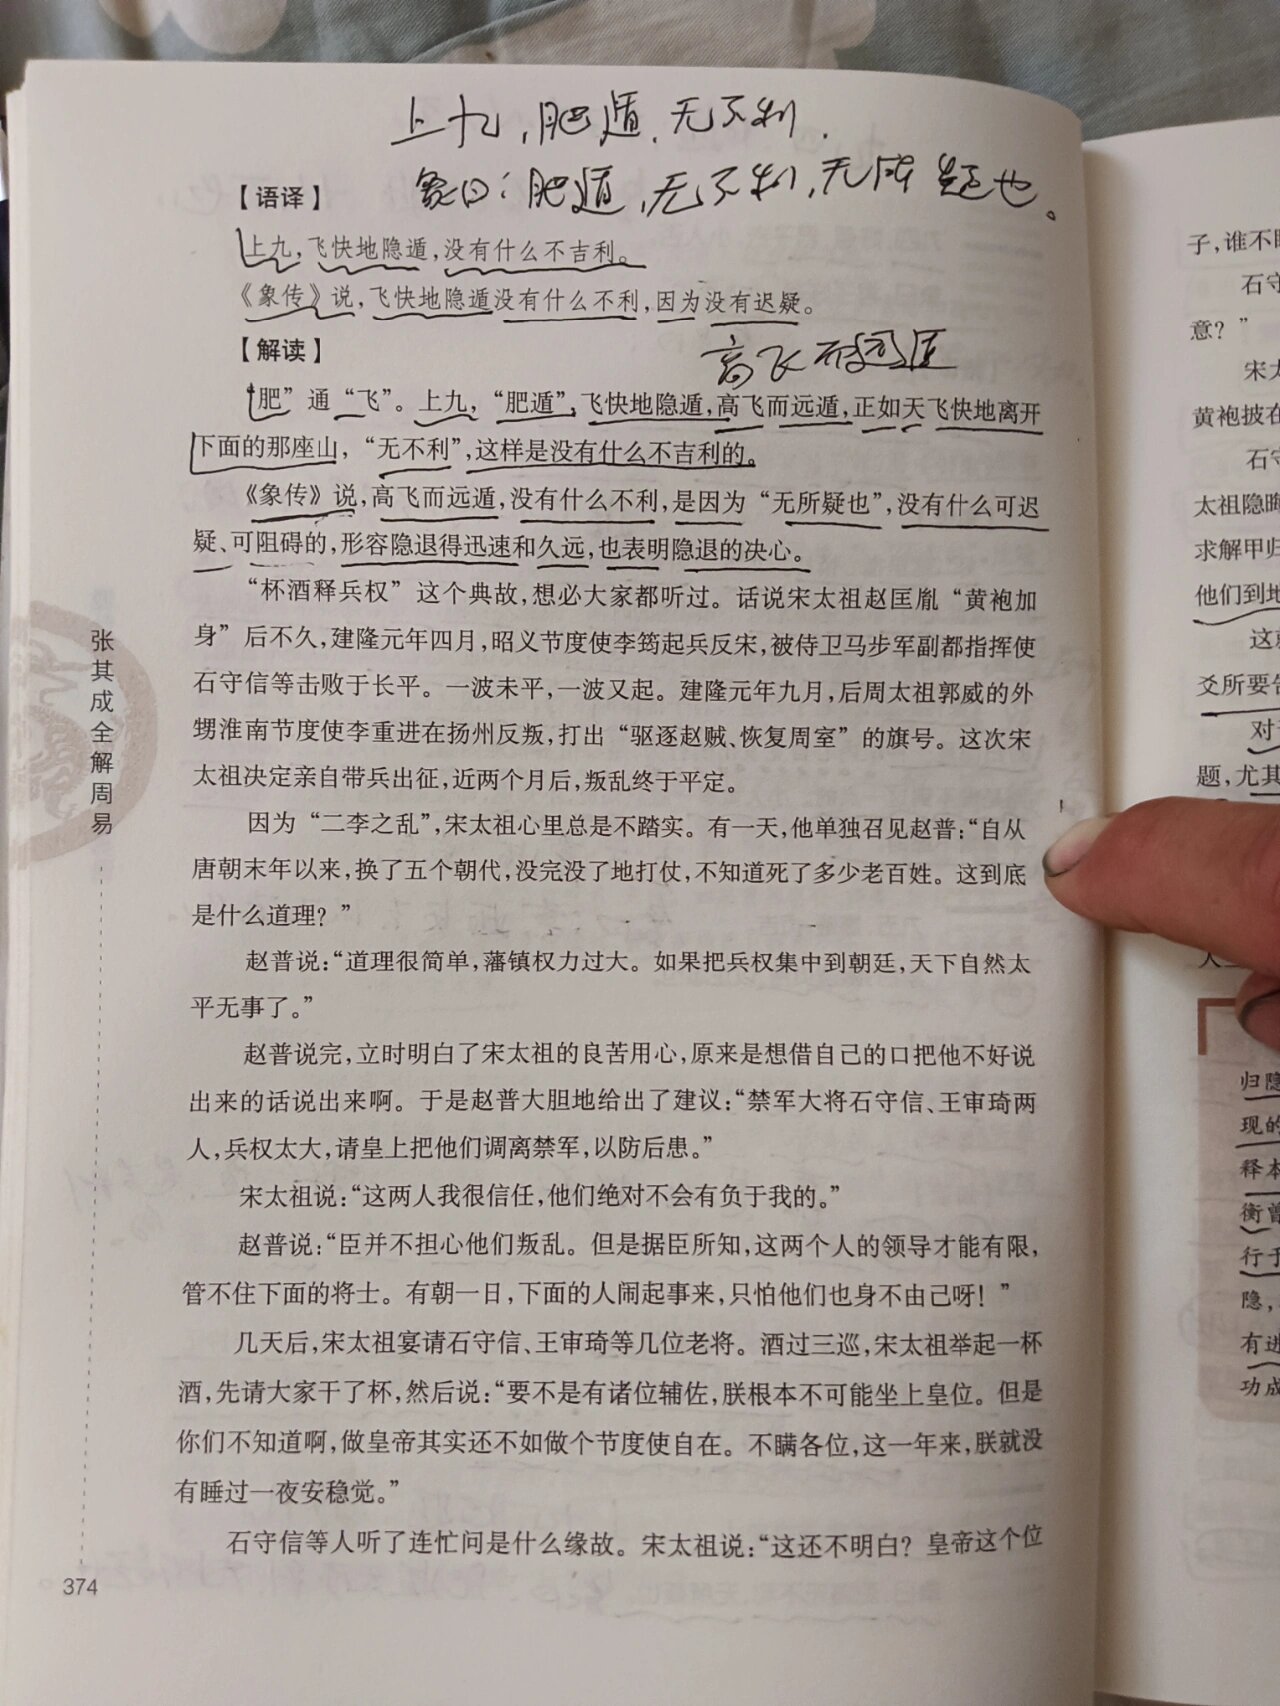 上九，肥遁，无不利．
象曰：肥遁，无不利，无所疑也。
【语译】
上九，飞快地隐遁，没有什么不吉利。
《象传》说，飞快地隐遁没有什么不利，因为没有迟疑。
【解读】
高飞而远遁
“肥”通“飞”。上九，“肥遁”，飞快地隐遁，高飞而远遁，正如天飞快地离开
下面的那座山，“无不利”，这样是没有什么不吉利的。
《象传》说，高飞而远遁，没有什么不利，是因为“无所疑也”，没有什么可迟
疑、可阻碍的，形容隐退得迅速和久远，也表明隐退的决心。
“杯酒释兵权”这个典故，想必大家都听过。话说宋太祖赵匡胤“黄袍加
身”后不久，建隆元年四月，昭义节度使李筠起兵反宋，被侍卫马步军副都指挥使
石守信等击败于长平。一波未平，一波又起。建隆元年九月，后周太祖郭威的外
甥淮南节度使李重进在扬州反叛，打出“驱逐赵贼、恢复周室”的旗号。这次宋
太祖决定亲自带兵出征，近两个月后，叛乱终于平定。
因为“二李之乱”，宋太祖心里总是不踏实。有一天，他单独召见赵普：“自从
唐朝末年以来，换了五个朝代，没完没了地打仗，不知道死了多少老百姓。这到底
是什么道理？”
赵普说：“道理很简单，藩镇权力过大。如果把兵权集中到朝廷，天下自然太
平无事了。”
赵普说完，立时明白了宋太祖的良苦用心，原来是想借自己的口把他不好说
出来的话说出来啊。于是赵普大胆地给出了建议：“禁军大将石守信、王审琦两
人，兵权太大，请皇上把他们调离禁军，以防后患。”
宋太祖说：“这两人我很信任，他们绝对不会有负于我的。”
赵普说：“臣并不担心他们叛乱。但是据臣所知，这两个人的领导才能有限，
管不住下面的将士。有朝一日，下面的人闹起事来，只怕他们也身不由己呀！”
几天后，宋太祖宴请石守信、王审琦等几位老将。酒过三巡，宋太祖举起一杯
酒，先请大家干了杯，然后说：“要不是有诸位辅佐，朕根本不可能坐上皇位。但是
你们不知道啊，做皇帝其实还不如做个节度使自在。不瞒各位，这一年来，朕就没
有睡过一夜安稳觉。”
石守信等人听了连忙问是什么缘故。宋太祖说：“这还不明白？皇帝这个位
张其成全解周易
374
子，谁不
石守
意？”
宋太
黄袍披在
石守
太祖隐晦
求解甲归
他们到地
这就
爻所要告
对
题，尤其
归隐
现的
释本
衡曾
行于
隐，
有进
功成